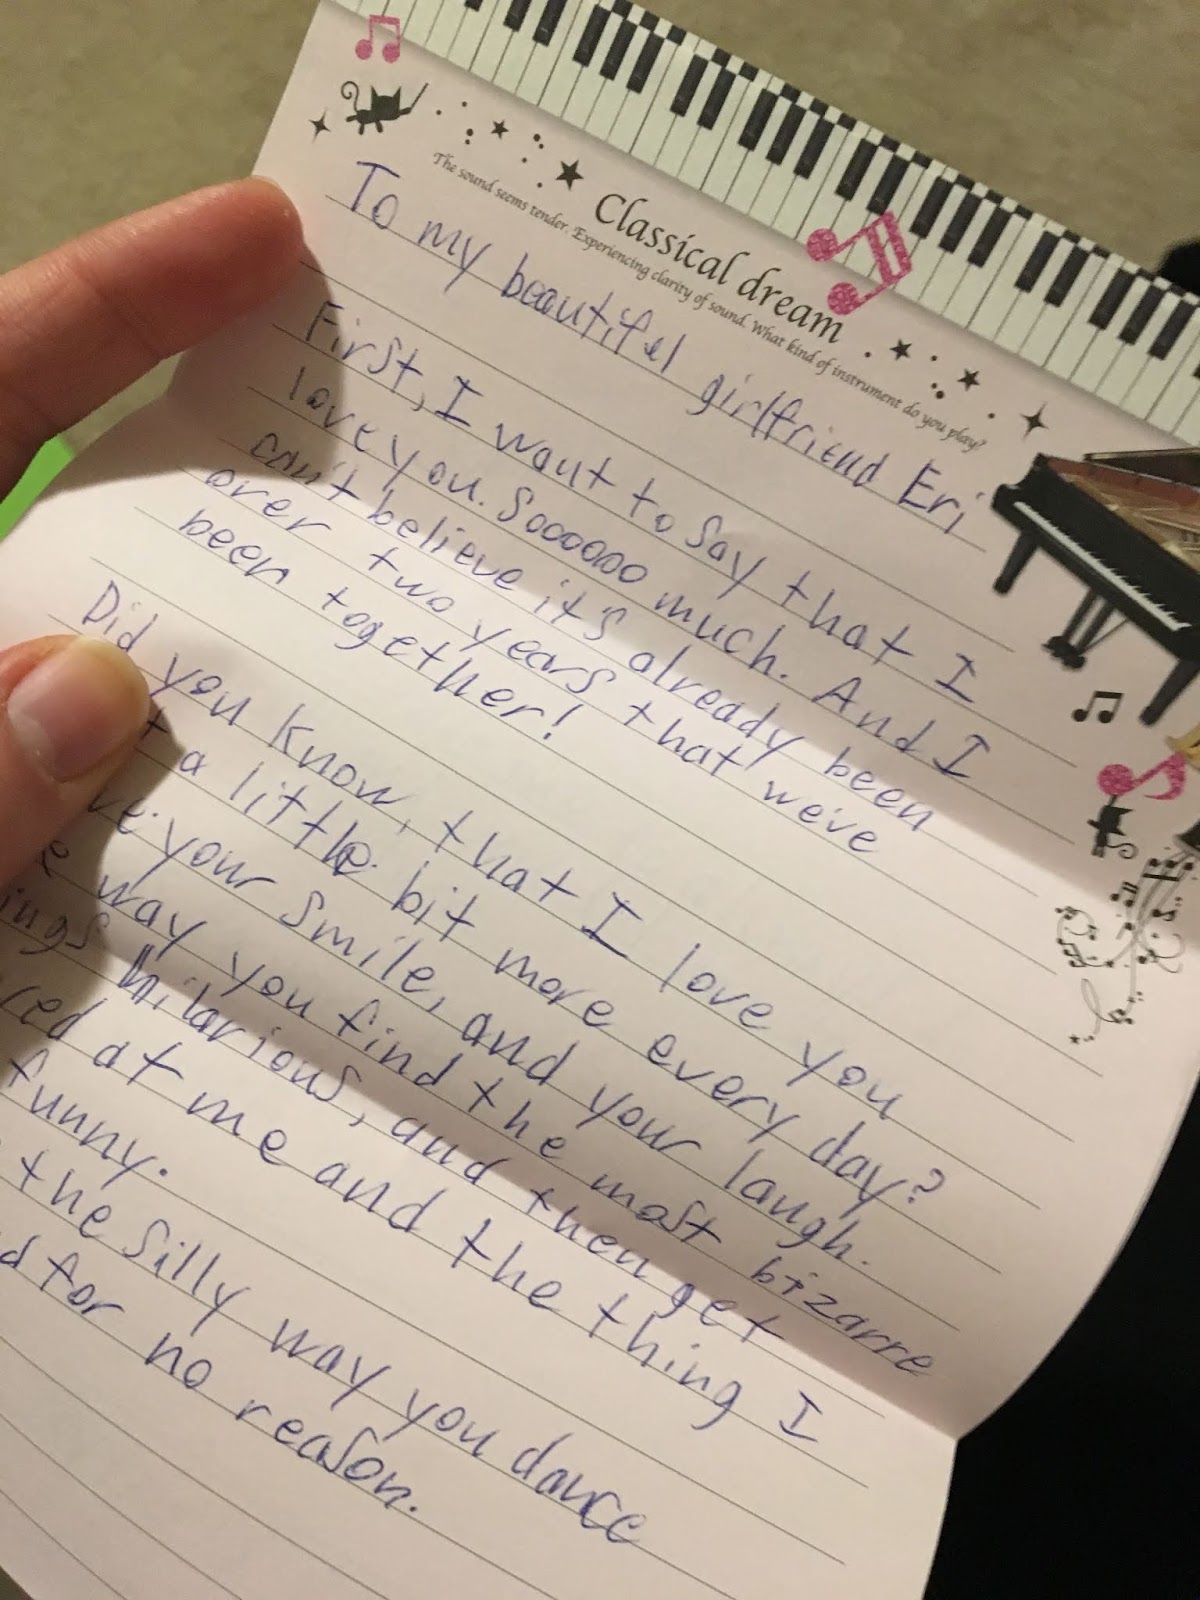 Classical dream
The sound seems tender. Experiencing clarity of sound. What kind of instrument do you play?
To my beautiful girlfriend Eri
First, I want to say that I
love you. Soooooo much. And I
can't believe it's already been
over two years that we've
been together!
Did you know, that I love you
a little bit more every day?
your smile, and your laugh.
way you find the most bizarre
hilarious, and then get
at me and the thing I
funny.
the silly way you dance
for no reason.